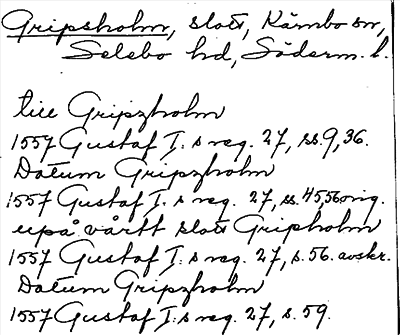 Gripsholm, slott, Kärnbo sn,
Selebo hd, Söderm. l.
till Gripzholm
1557 Gustaf I. s reg. 27, ss. 9, 36.
Datum Gripzholm
1557 Gustaf I. s reg. 27, ss. 45, 56 orig.
upå vårtt slott Gripsholm
1557 Gustaf I. s reg. 27, s. 56. avskr.
Datum Gripzholm
1557 Gustaf I. s reg. 27, s. 59.